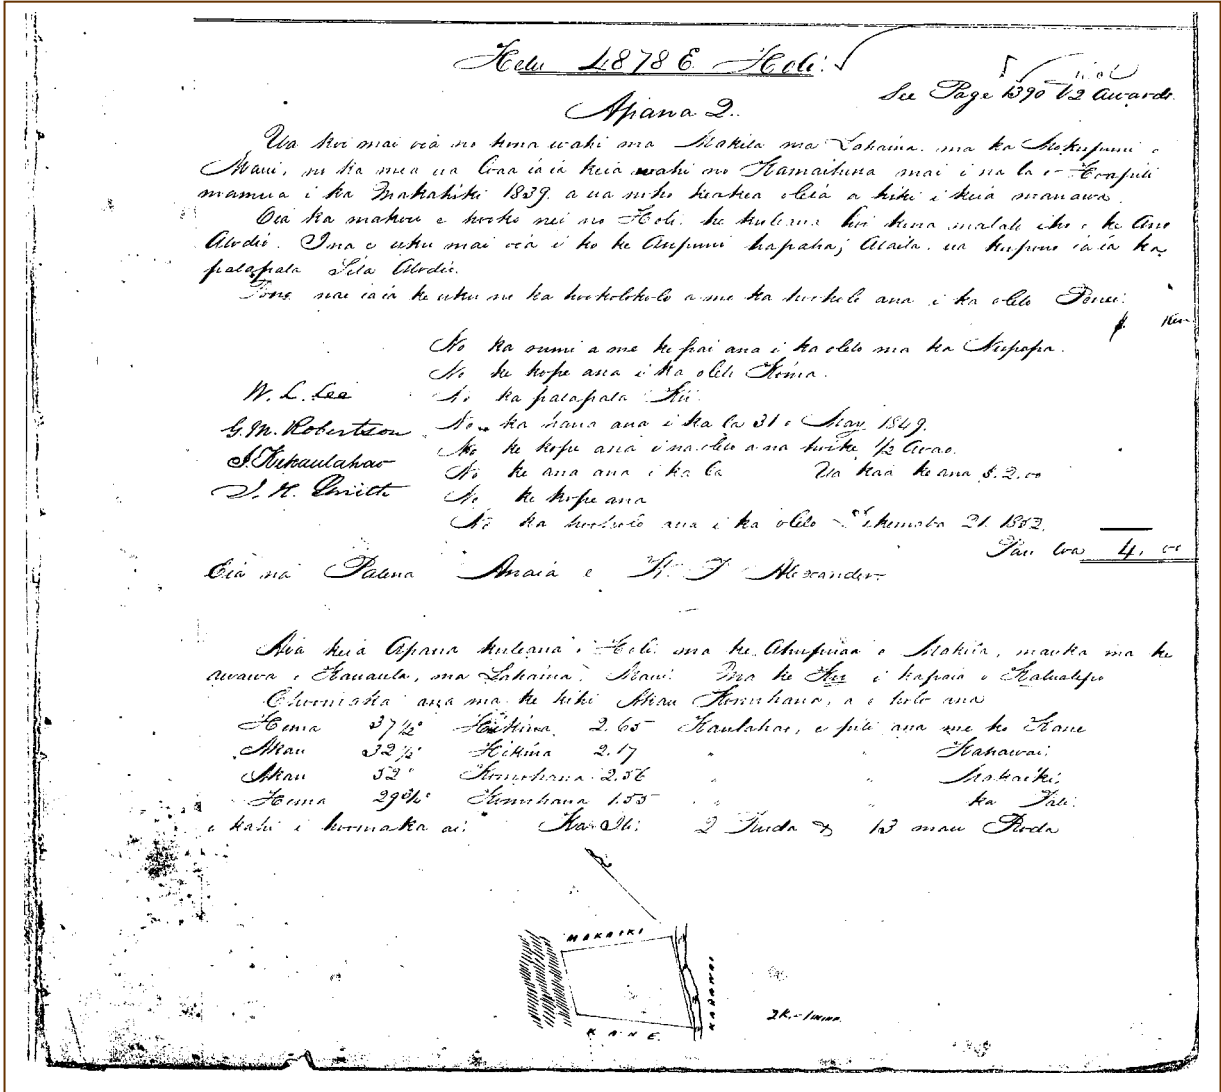 Helu 4878 E Holi.
See Page 1390 V2 Awards.
Apana 2.
Ua koi mai oia no kona wahi ma Makila ma Lahaina. ma ka Mokupuni o
Maui, no ka mea ua loaa iaia keia wahi no Kamaituna mai i na la o Hoapili
mamua i ka Makahiki 1839. a ua noho keakea oleia a hiki i keia manawa.
Oia ka makou e hooko nei no Holi. he kuleana koi kona malalo iho o ke Ano
Alodio. Ina e uku mai oia i ko ke Aupuni hapaha; Alaila. ua kupono iaia ka
palapala Sila Alodio.
Pono nae iaia ke uku no ka hookolokolo a me ka hooholo ana i ka olelo Penei:
$. Ken
No ka rumi a me ke pai ana i ka olelo ma ka Nupepa.
No ke kope ana i ka olelo
W. L. Lee
No ka palapala Kii
G. M. Robertson
No ka hana ana i ka la 31 o May 1849.
J. Kekaulahao
No ke kope ana i na olelo a na hoike, 1/2 Awao.
No ke ana ana i ka la Ua kaa ke ana $. 2.00
J. H. Smith
No ke kope ana
No ka hooholo ana i ka olelo Dekemaba 21. 1852.
Pau loa 4. 00
Eia na Palena Anaia e Alexander
Aia keia Apana kuleana o Holi ma ke Ahupuaa o Makila, mauka ma ke
awawa o Kauaula, ma Lahaina, Maui. Ma ke Kii i kapaia o Kalualepo
E hoomaka ana ma ke kihi Akau Komohana, a e holo ana
Hema 37 1/2° Hikina 2.65 Kaulahao, e pili ana me ko Kane
Akau 32 1/2° Hikina 2.17 " " Kahawai:
Akau 52° Komohana 2.56 " " Makaiki.
Hema 29 3/4° Komohana 1.55 " " ka Pali.
i kahi i hoomaka ai. Ka Ili: 2 Ruda & 13 mau Roda
MAKAIKI
KAHAWAI
KANE.
2K.-1 INIHA.